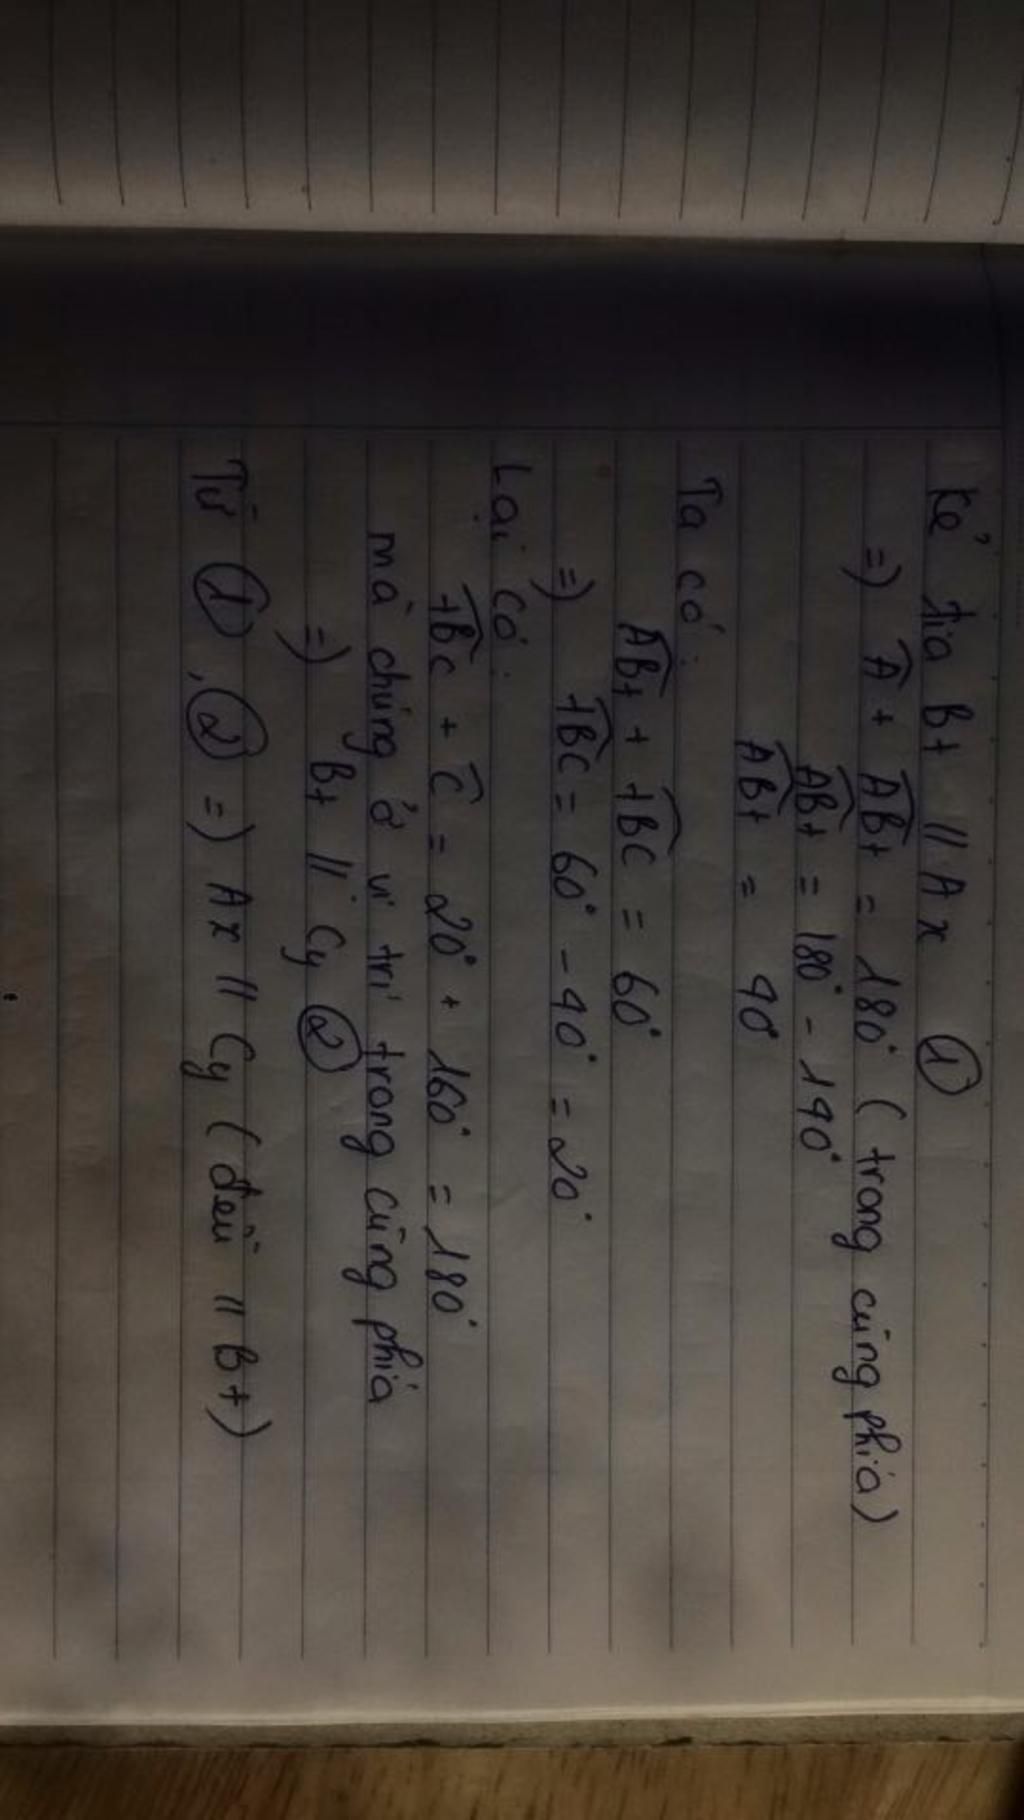 Kẻ tia Bt // Ax ①
=) Â + ABt̂ = 180° ( trong cùng phía)
ABt̂ = 180° - 140°
ABt̂ = 40°
Ta có:
ABt̂ + tBĈ = 60°
=) tBĈ = 60° - 40° = 20°
Lại có:
tBĈ + Ĉ = 20° + 160° = 180°
mà chúng ở vị trí trong cùng phía
=) Bt // Cy ②
Từ ①, ② =) Ax // Cy ( đều // Bt)